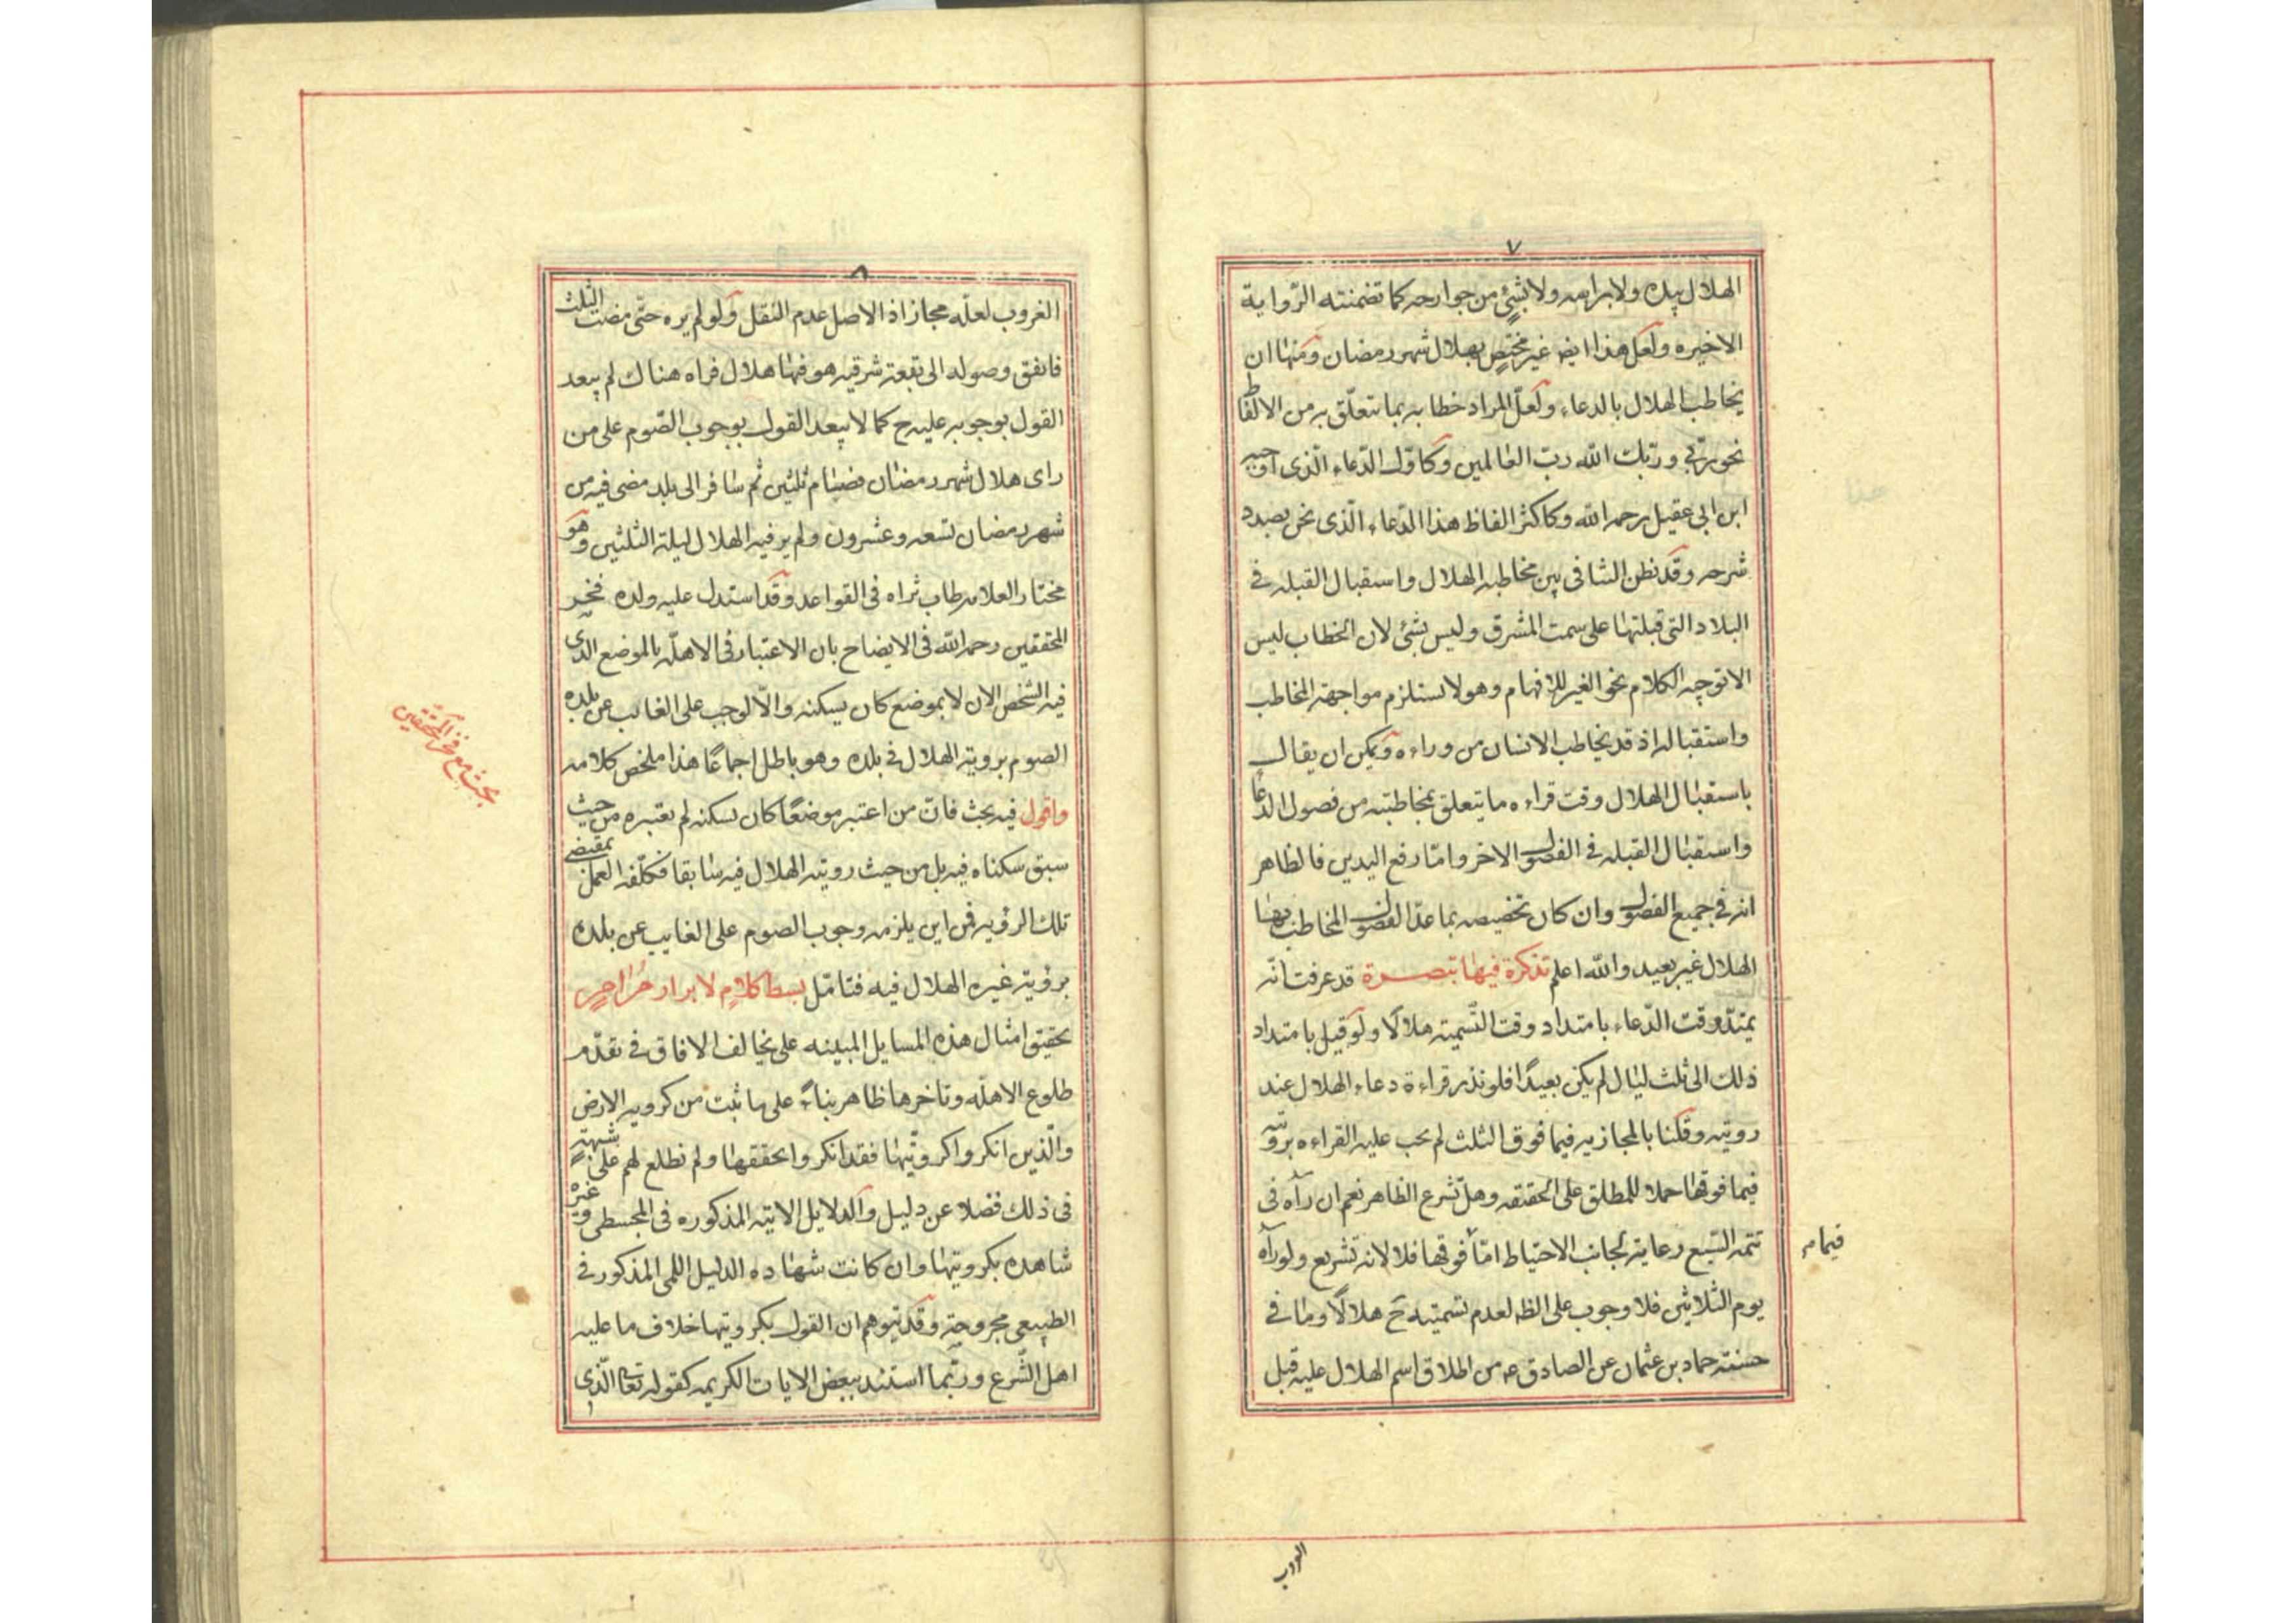 ٧
الهلال بيده ولا براسه ولا بشئ من جوارحه كما تضمنته الرواية
الاخيره ولعل هذا ايضا غير مختص بهلال شهر رمضان ومنها ان
يخاطب الهلال بالدعاء ولعلّ المراد خطابه بما يتعلّق به من الالفاظ
نحو ربّي وربّك الله ربّ العالمين وكاوّل الدّعاء الّذى اوجبه
ابن ابى عقيل رحمه الله وكاكثر الفاظ هذا الدّعاء الّذى نحن بصدد
شرحه وقد نظن التنافى بين مخاطبة الهلال واستقبال القبله فى
البلاد التى قبلتها على سمت المشرق وليس بشئ لان الخطاب ليس
الا توجيه الكلام نحو الغير للافهام وهو لا يستلزم مواجهة المخاطب
واستقباله اذ قد يخاطب الانسان من وراءه ويمكن ان يقال
باستقبال الهلال وقت قراءه ما يتعلق بمخاطبته من فصول الدعا
واستقبال القبله فى الفصول الاخر وامّا رفع اليدين فالظاهر
انه فى جميع الفصول وان كان تخصيصه بما عدا الفصول المخاطب بها
الهلال غير بعيد والله اعلم تذكرة فيها تبصرة قد عرفت انّه
يمتدّ وقت الدّعاء بامتداد وقت التّسمية هلالًا ولو قيل بامتداد
ذلك الى ثلث ليال لم يكن بعيدًا فلو نذر قراءة دعاء الهلال عند
رويته وقلنا بالمجازيه فيما فوق الثلث لم يجب عليه القراءه برويته
فيما فوقها حملا للمطلق على الحقيقه وهل تشرع الظاهر نعم ان رآه فى
تتمة التسع رعاية لجانب الاحتياط امّا فوقها فلا لانه تشريع ولو رآه
فيما م
يوم الثلاثين فلا وجوب على الظ لعدم تسميته ح هلالًا وما فى
حسنة حماد بن عثمان عن الصادق ع من اطلاق اسم الهلال عليه قبل
الغروب
٨
الغروب لعلّه مجاز اذ الاصل عدم النقل ولو لم يره حتّى مضت الثلث
فاتفق وصوله الى بقعة شرقيه هو فيها هلال فراه هناك لم يبعد
القول بوجوبه عليه ح كما لا يبعد القول بوجوب الصّوم على من
راى هلال شهر رمضان فصام ثلثين ثم سافر الى بلد مضى فيه من
شهر رمضان تسعه وعشرون ولم ير فيه الهلال ليلة الثلثين وهو
مختار العلامه طاب ثراه فى القواعد وقد استدل عليه ولده فخر
المحققين رحمه الله فى الايضاح بان الاعتبار فى الاهلّه بالموضع الذى
فيه الشخص الان لا بموضع كان يسكنه والّا لوجب على الغائب عن بلده
الصوم بروية الهلال فى بلده وهو باطل اجماعًا هذا ملخص كلامه
بحث مع فخر المحققين
واقول فيه بحث فانّ من اعتبر موضعًا كان يسكنه لم يعتبره من حيث
سبق سكناه فيه بل من حيث روية الهلال فيه سابقا فكلّفه العمل بمقتضى
تلك الرؤيه فمن اين يلزمه وجوب الصوم على الغايب عن بلده
برؤية غيره الهلال فيه فتامّل بسط كلامٍ لابراز مرامٍ
تحقيق امثال هذه المسايل المبينه على تخالف الافاق فى تقدّم
طلوع الاهلّه وتاخرها ظاهر بناءً على ما ثبت من كرويه الارض
والّذين انكروا كرويّتها فقد انكروا تحققها ولم نطلع لهم على شبهةٍ
فى ذلك فضلا عن دليل والدلايل الانيّه المذكوره فى المجسطى وغيره
شاهده بكرويتها وان كانت شهاده الدليل اللمى المذكور فى
الطبيعى مجروحة وقد يتوهم ان القول بكرويتها خلاف ما عليه
اهل الشّرع وربّما استند ببعض الايات الكريمه كقوله تعالى الّذى